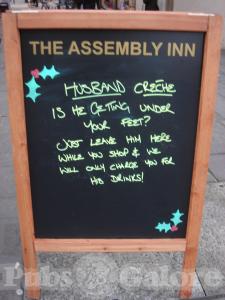 THE ASSEMBLY INN
HUSBAND CRECHE
IS HE GETTING UNDER
YOUR FEET?
JUST LEAVE HIM HERE
WHILE YOU SHOP & WE
WILL ONLY CHARGE YOU FOR
HIS DRINKS!
Pubs Galore